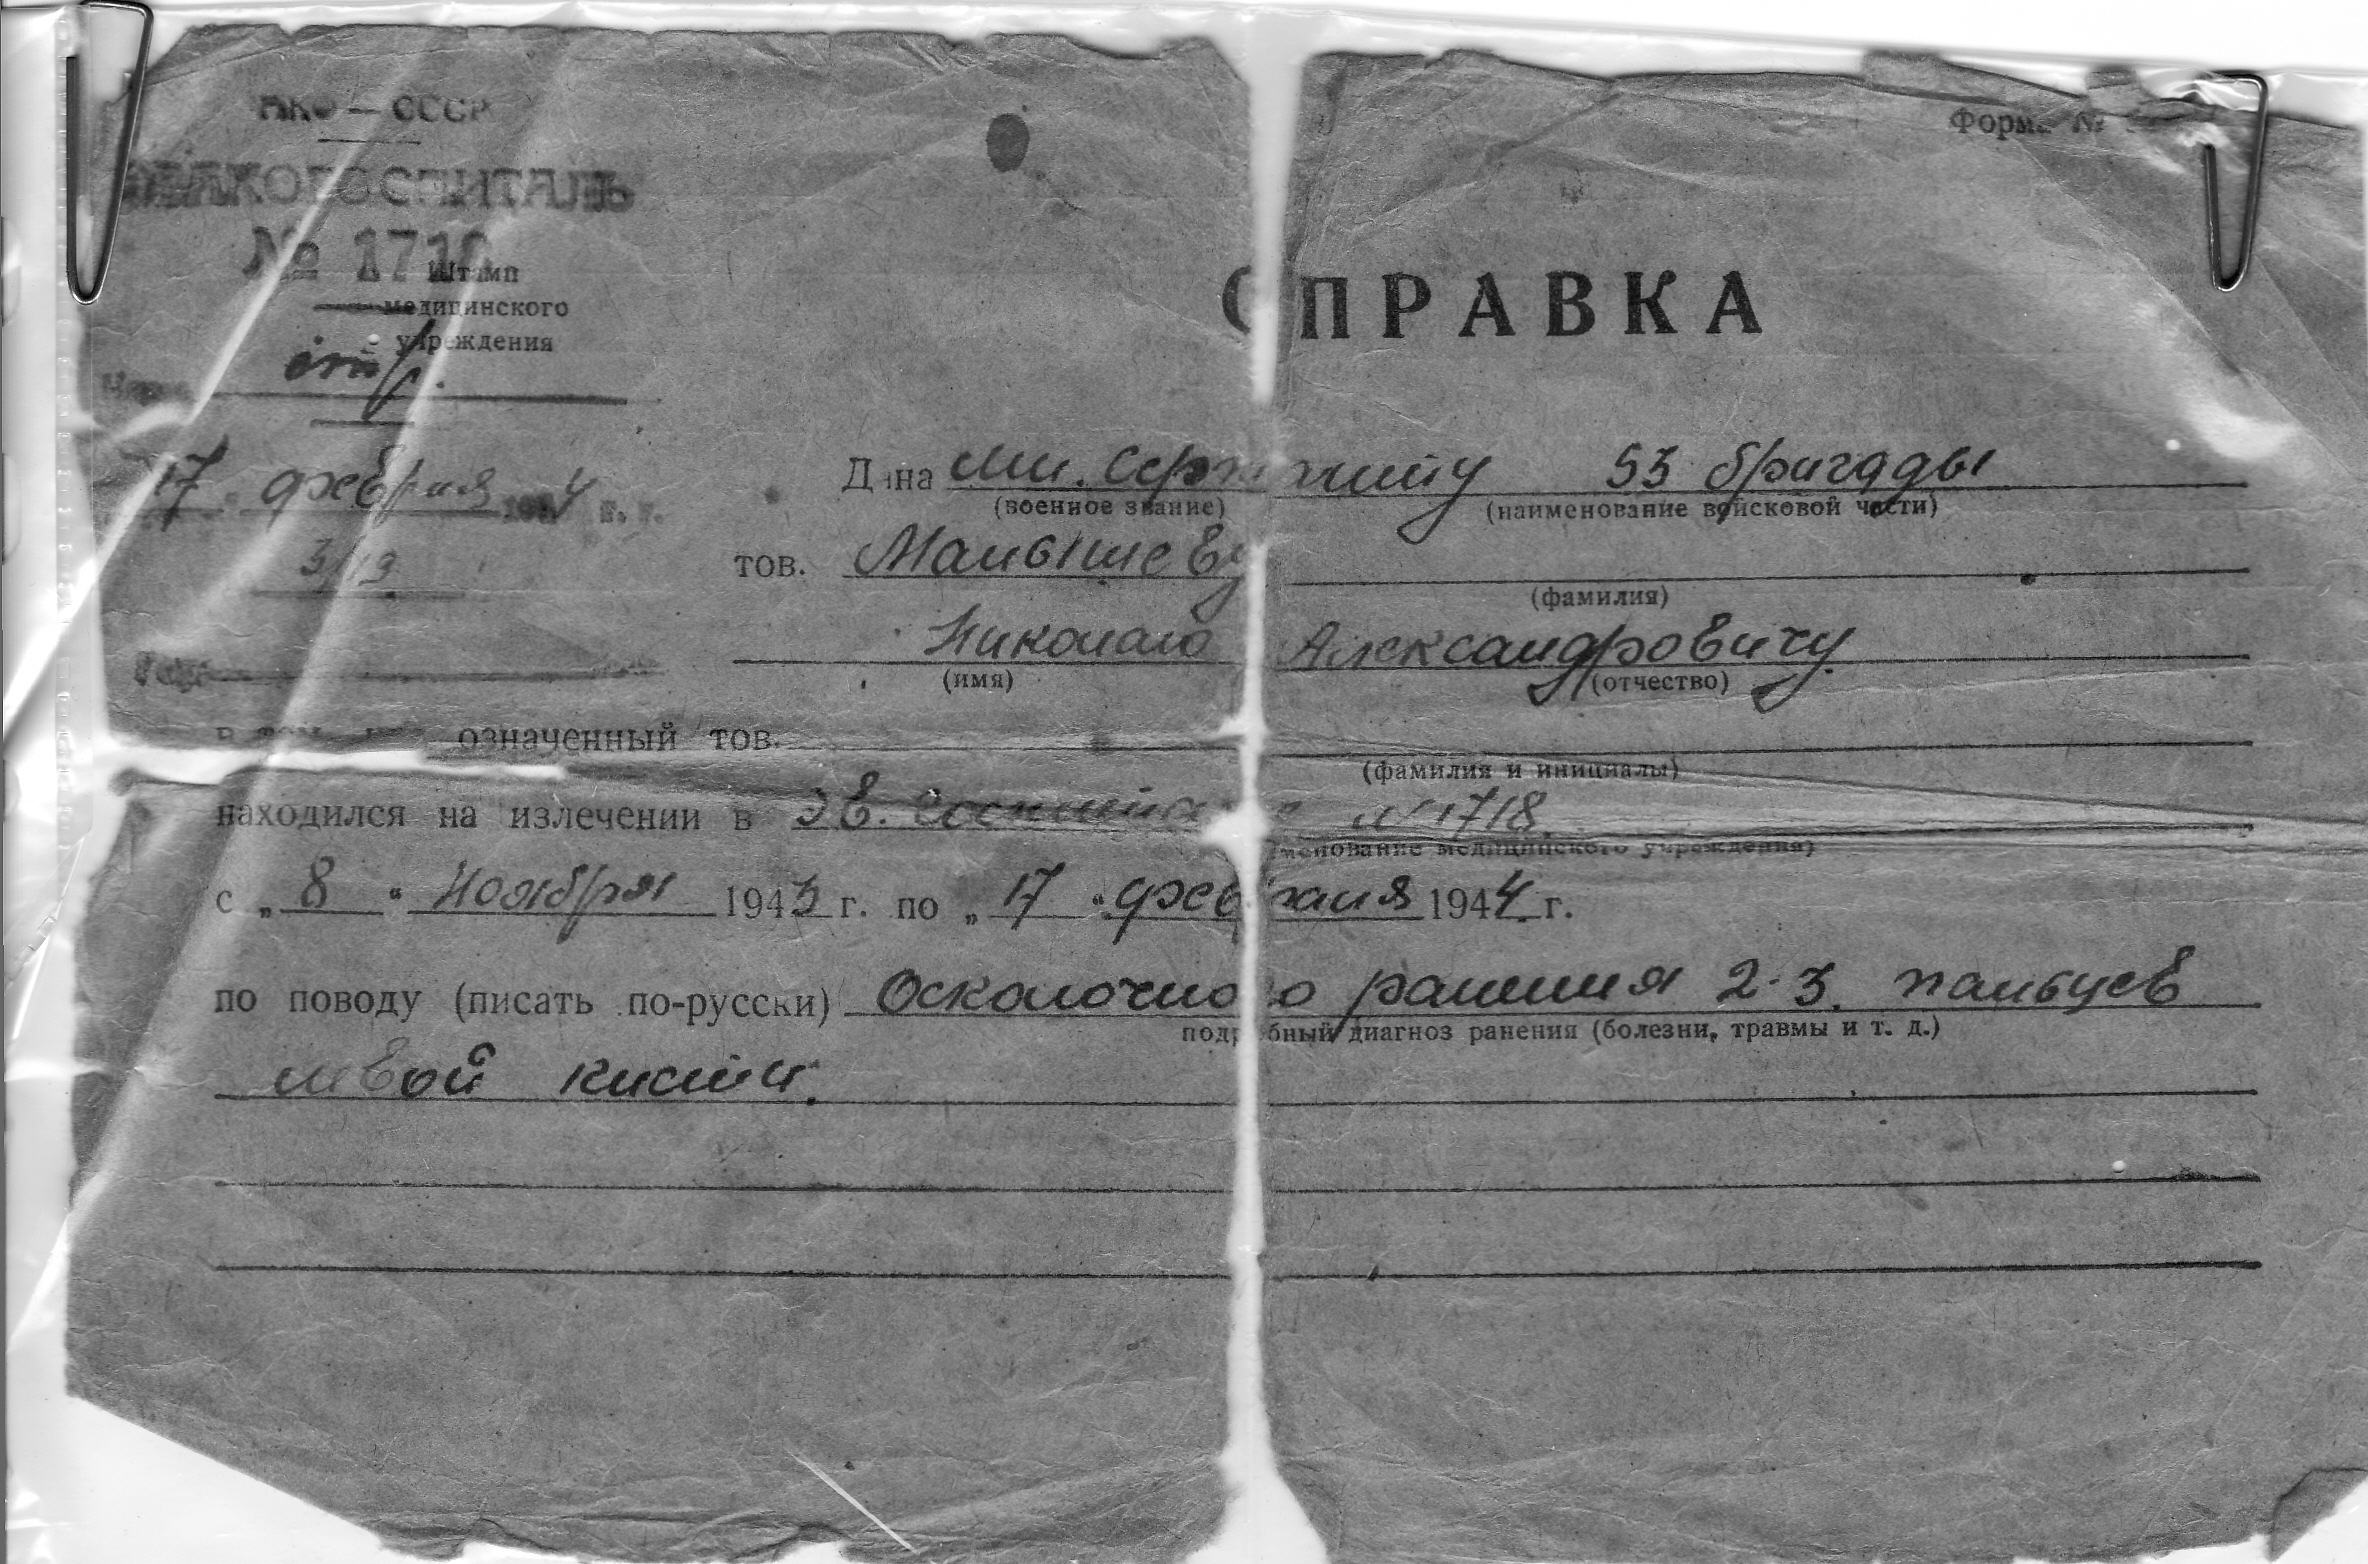 НКО — СССР
Форма №
ЭВАКОГОСПИТАЛЬ
№ 1718
Штамп
медицинского
учреждения
СПРАВКА
17 февраля 1944 г.
Дана мл. сержанту 53 бригады
(военное звание) (наименование войсковой части)
тов. Малышеву
(фамилия)
Николаю Александровичу
(имя) (отчество)
в том, что означенный тов.
(фамилия и инициалы)
находился на излечении в эв. госпитале № 1718
(наименование медицинского учреждения)
с „ 8 “ Ноября 1943 г. по „ 17 “ февраля 1944 г.
по поводу (писать по-русски) Осколочного ранения 2-3 пальцев
подробный диагноз ранения (болезни, травмы и т. д.)
левой кисти.